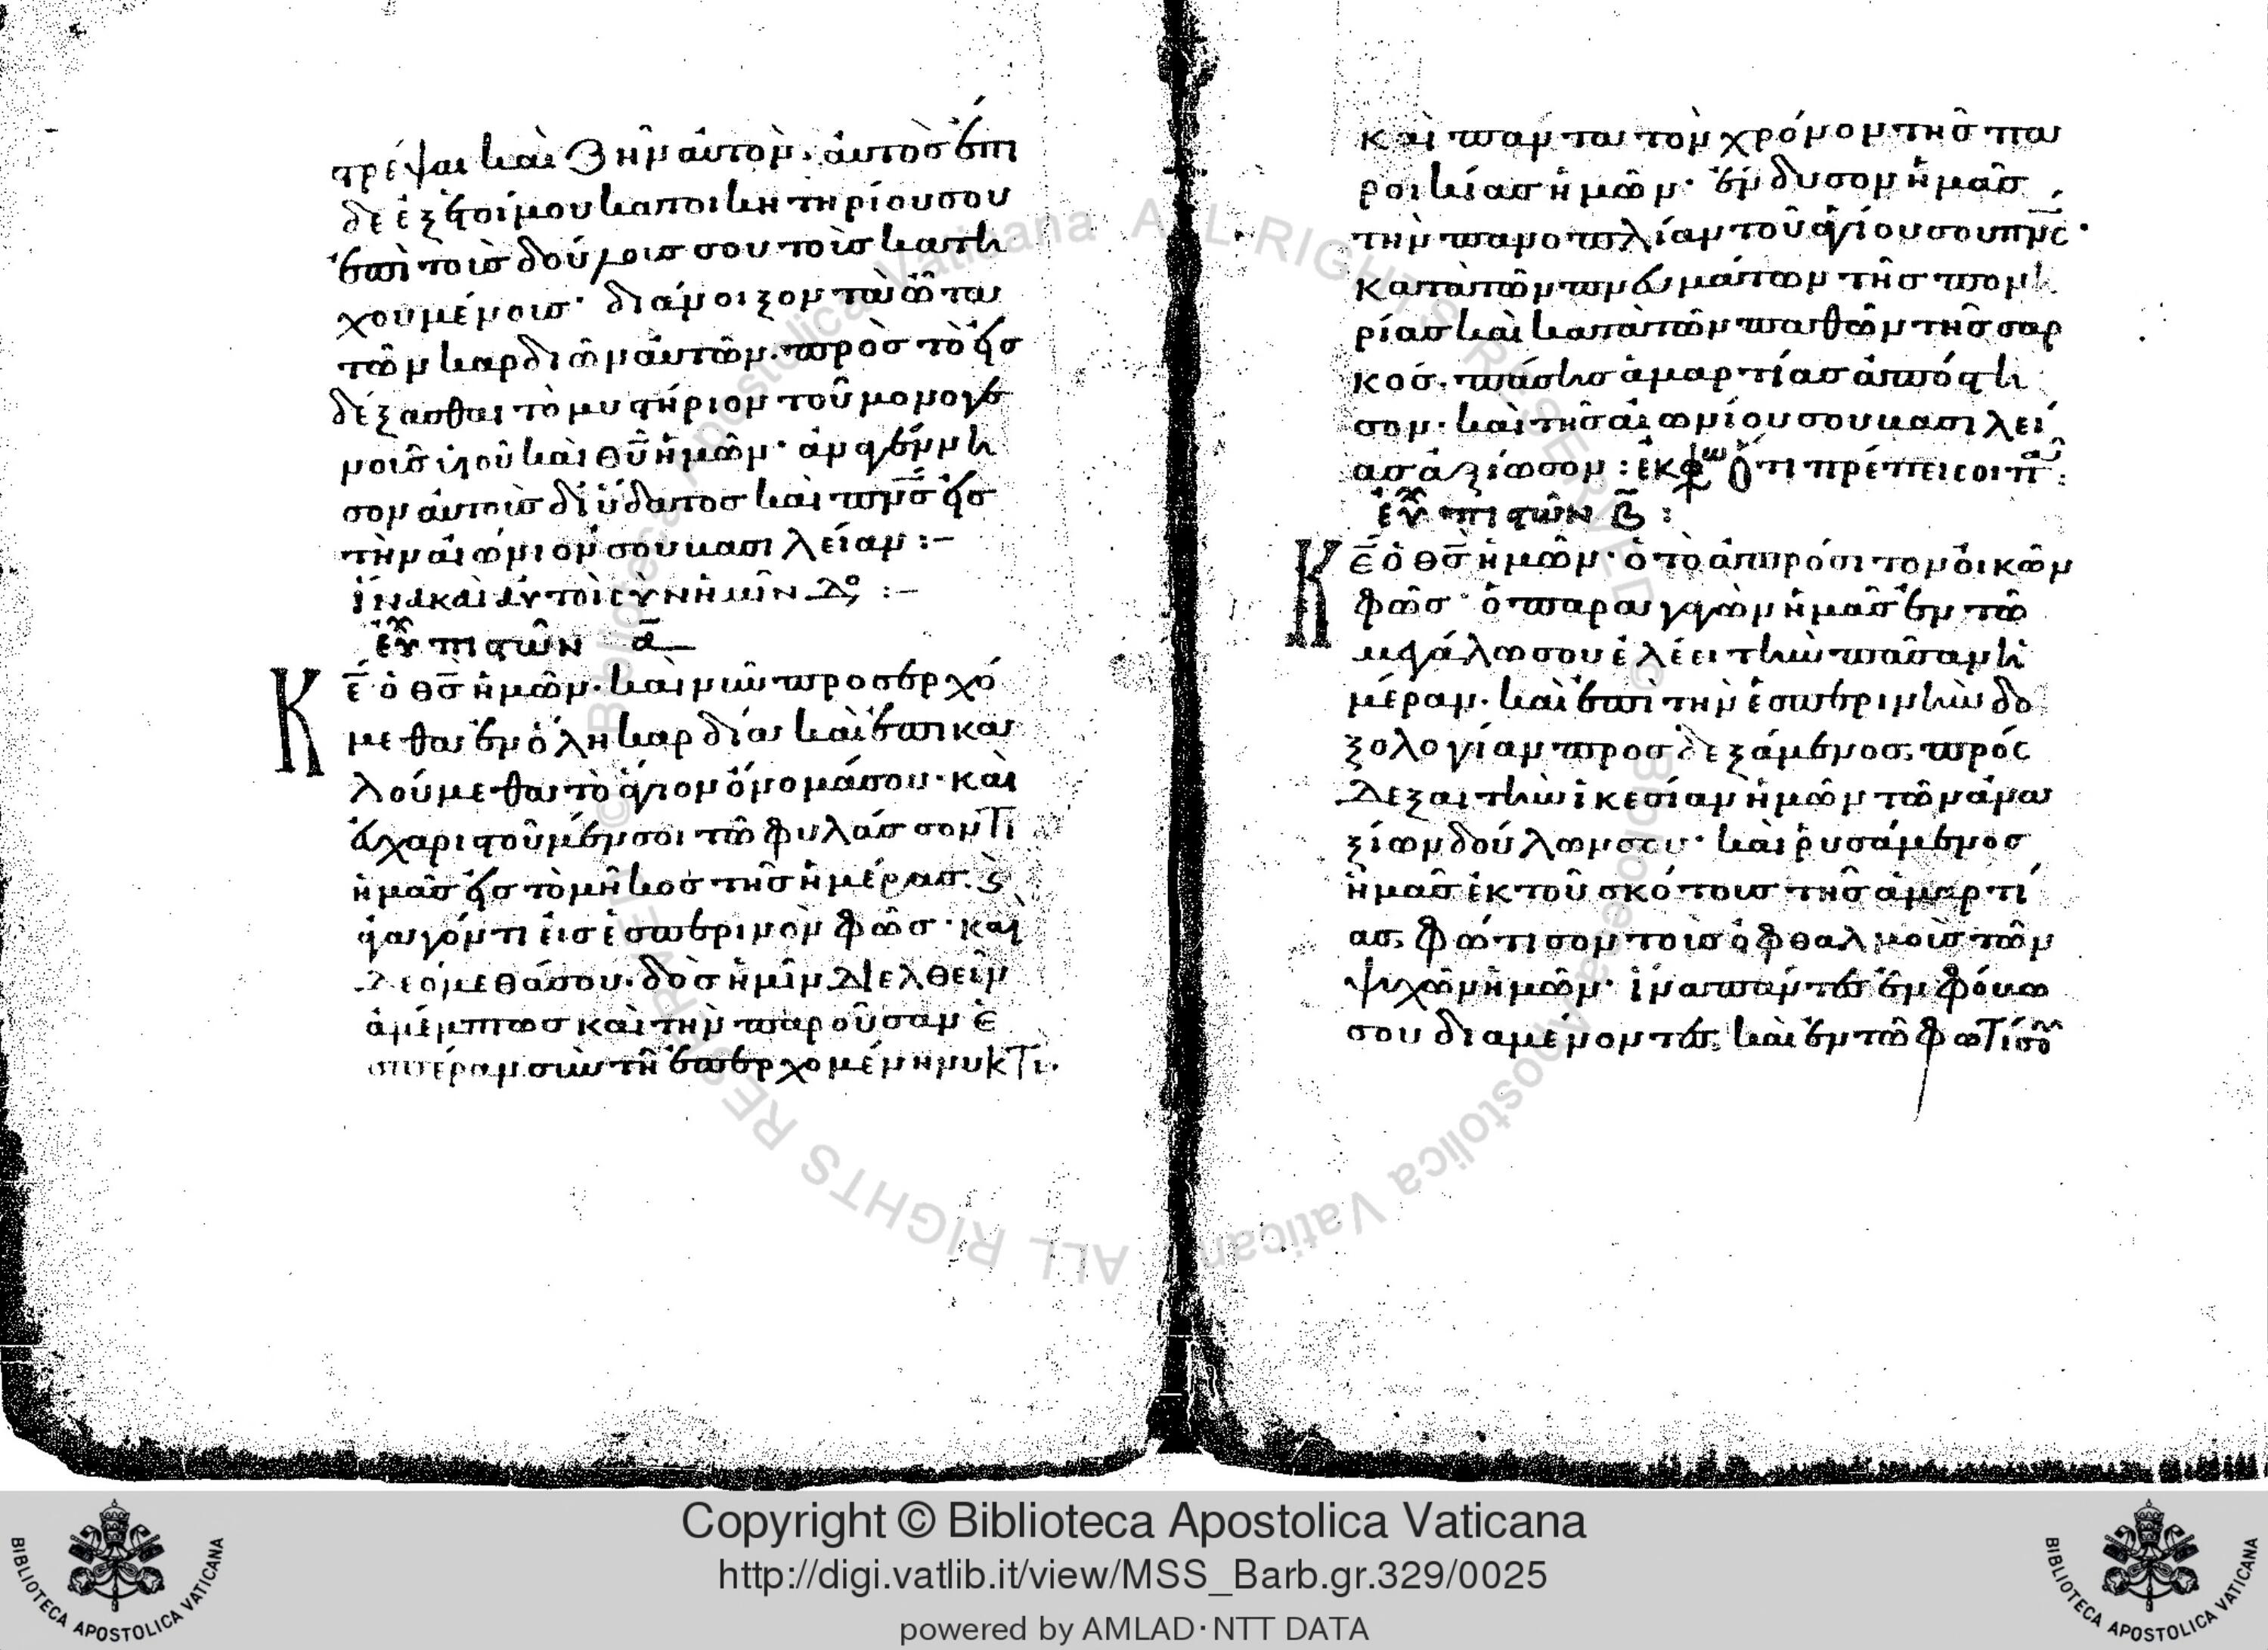 τρέψαι καὶ ζῆν αὐτὸν· αὐτὸς ἐπί
δε ἐξ ἑτοίμου κατοικητηρίου σου
ἐπὶ τοὺς δούλους σου τοὺς κατη
χουμένους· διάνοιξον τὰ ὦτα
τῶν καρδιῶν αὐτῶν· πρὸς τὸ εἰσ
δέξασθαι τὸ μυστήριον τοῦ μονογε
νοῦς ἰησοῦ καὶ θῦ ἡμῶν· ἀναγέννη
σον αὐτοὺς δι' ὕδατος καὶ πνς εἰς
τὴν αἰώνιόν σου βασιλείαν :–
ἵνα καὶ αὐτοὶ σὺν ἡμῖν δο :–
εὐχ πιστῶν α
Κε ὁ θς ἡμῶν· καὶ νῦν προσερχό
μεθα ἐν ὅλη καρδία καὶ ἐπικα
λούμεθα τὸ ἅγιον ὄνομά σου· καὶ
εὐχαριστοῦμέν σοι τῶ φυλάσσοντι
ἡμᾶς εἰς τὸ μῆκος τῆς ἡμέρας· καὶ
ἀγαγόντι εἰς ἑσπερινὸν φῶς· καὶ
δεόμεθά σου· δὸς ἡμῖν διελθεῖν
ἀμέμπτως καὶ τὴν παροῦσαν ἑ
σπέραν σὺν τῆ ἐπερχομένη νυκτί·
καὶ πάντα τὸν χρόνον τῆς πα
ροικίας ἡμῶν· ἔνδυσον ἡμᾶς
τὴν πανοπλίαν τοῦ ἁγίου σου πνς·
κατὰ τῶν πνευμάτων τῆς πονη
ρίας καὶ κατὰ τῶν παθῶν τῆς σαρ
κός· πάσης ἁμαρτίας ἀπόστη
σον· καὶ τῆς αἰωνίου σου βασιλεί
ας ἀξίωσον : ἐκφω ὅτι πρέπει σοι π :
εὐχ πιστῶν β :
Κε ὁ θς ἡμῶν· ὁ τὸ ἀπρόσιτον οἰκῶν
φῶς· ὁ παραγαγὼν ἡμᾶς ἐν τῶ
μεγάλω σου ἐλέει τὴν πᾶσαν ἡ
μέραν· καὶ ἐπὶ τὴν ἑσπερινὴν δο
ξολογίαν προσδεξάμενος, πρόσ
δεξαι τὴν ἱκεσίαν ἡμῶν τῶν ἀνα
ξίων δούλων σου· καὶ ῥυσάμενος
ἡμᾶς ἐκ τοῦ σκότους τῆς ἁμαρτί
ας, φώτισον τοὺς ὀφθαλμοὺς τῶν
ψυχῶν ἡμῶν· ἵνα πάντες ἐν φόβω
σου διαμένοντες, καὶ ἐν τῶ φωτί σου
Copyright © Biblioteca Apostolica Vaticana
http://digi.vatlib.it/view/MSS_Barb.gr.329/0025
powered by AMLAD·NTT DATA
BIBLIOTECA APOSTOLICA VATICANA
BIBLIOTECA APOSTOLICA VATICANA